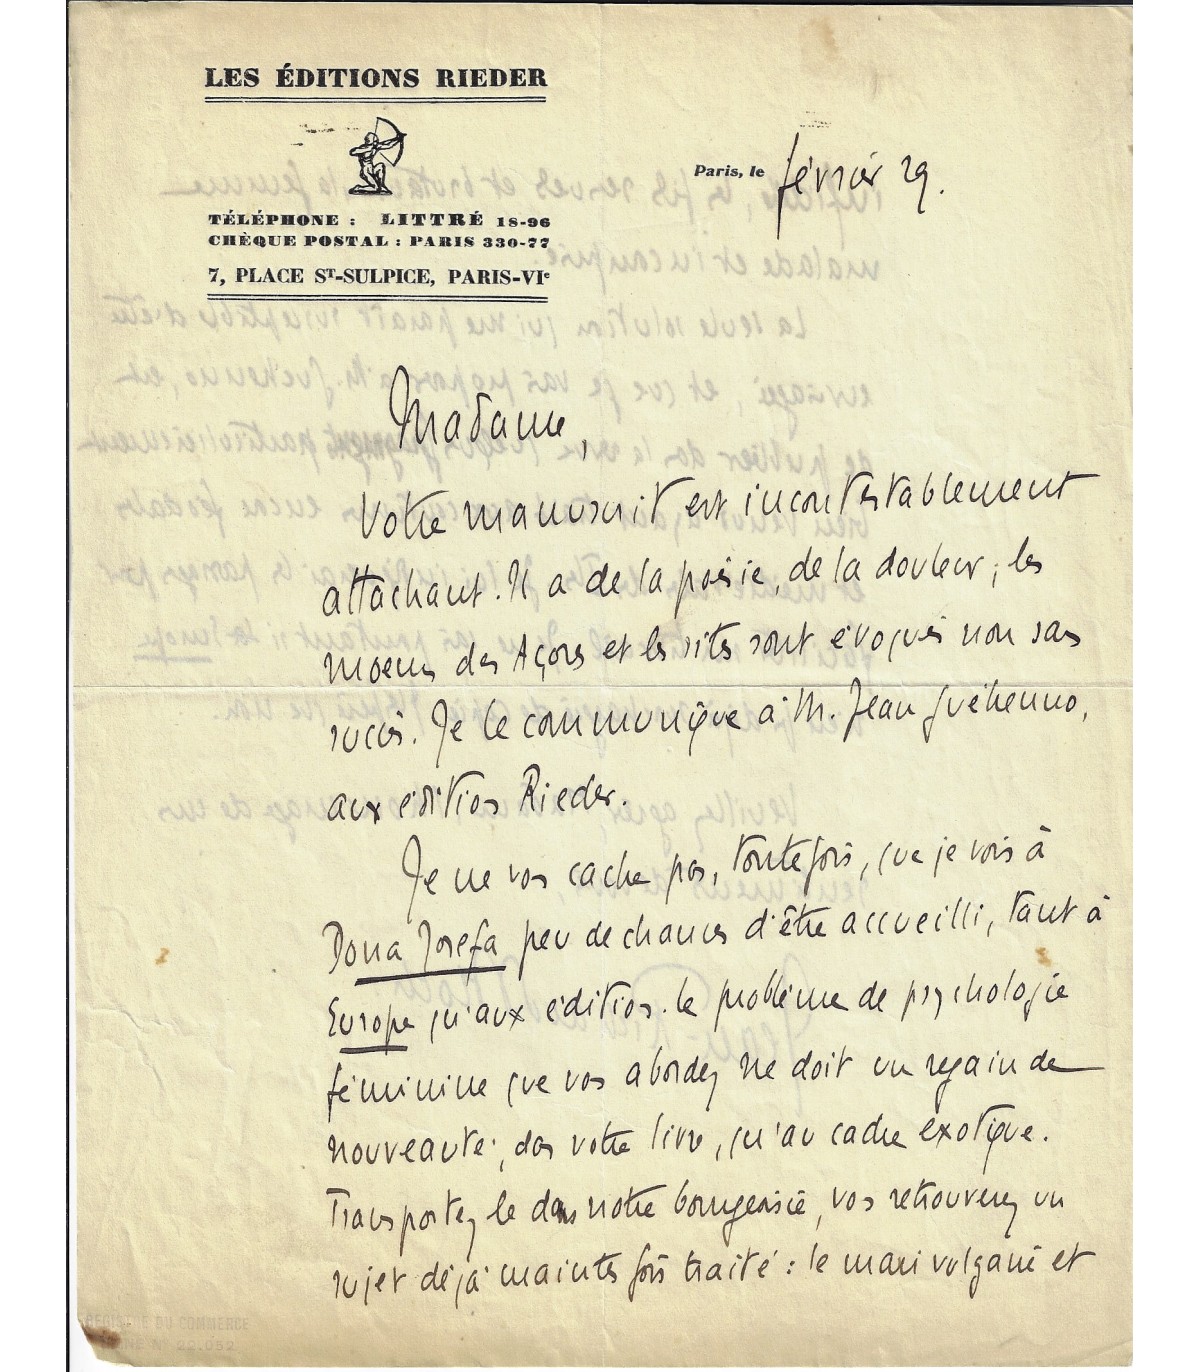 LES ÉDITIONS RIEDER
TÉLÉPHONE : LITTRÉ 18-96
CHÈQUE POSTAL : PARIS 330-77
7, PLACE ST-SULPICE, PARIS-VIe
Paris, le février 29.
Madame,
Votre manuscrit est incontestablement
attachant. Il a de la poésie, de la douleur ; les
moeurs des Açores et les sites sont évoqués non sans
succès. Je le communique à M. Jean Guéhenno,
aux éditions Rieder.
Je ne vous cache pas, toutefois, que je vois à
Dona Josefa peu de chances d'être accueilli, tant à
Europe qu'aux éditions. Le problème de psychologie
féminine que vous abordez ne doit un regain de
nouveauté, dans votre livre, qu'au cadre exotique.
Transportez le dans notre bourgeoisie, vous retrouverez un
sujet déjà maintes fois traité : le mari vulgaire et
REGISTRE DU COMMERCE
SEINE N° 22.052